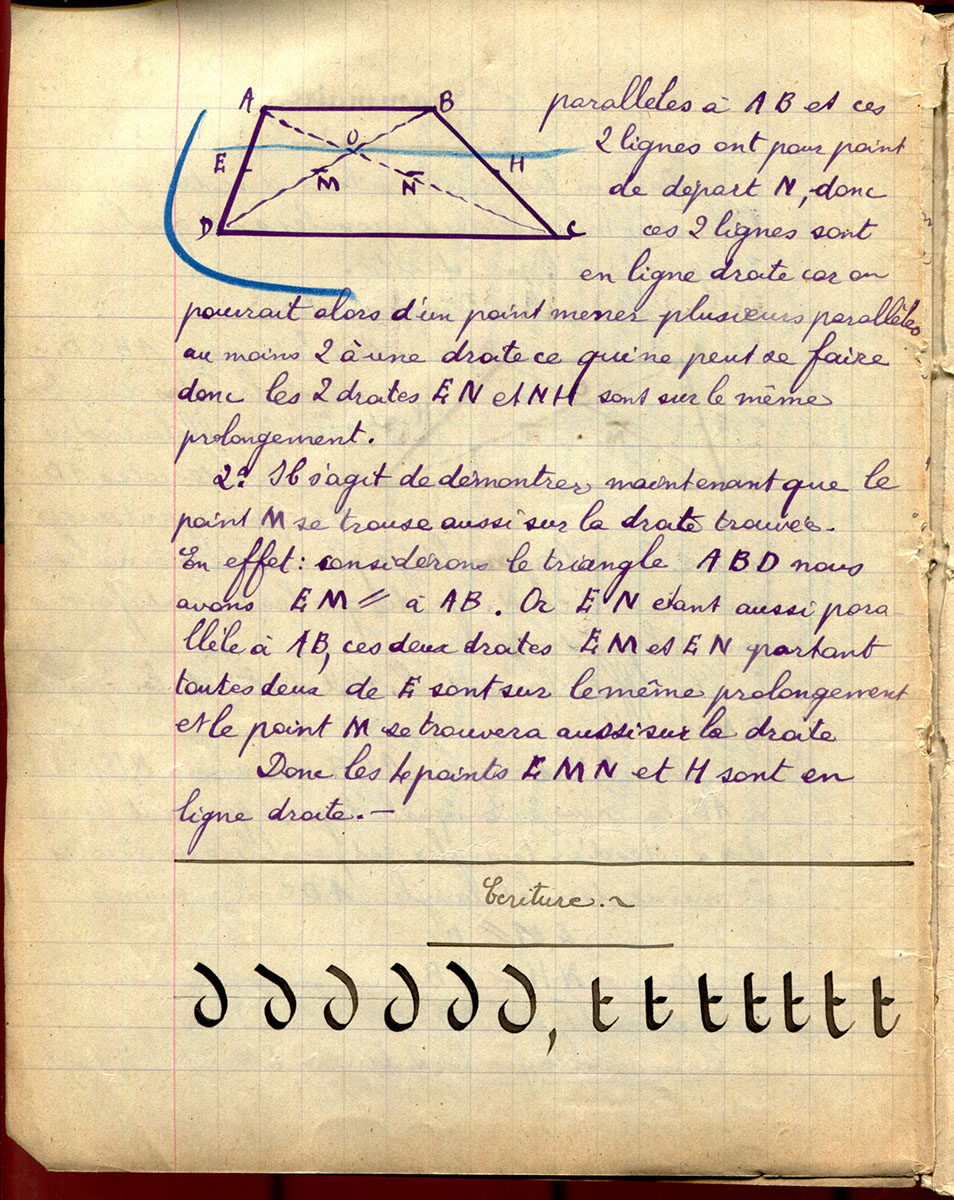 A B
O
E M N H
D C
parallèles à A B et ces
2 lignes ont pour point
de départ N, donc
ces 2 lignes sont
en ligne droite car on
pourrait alors d'un point mener plusieurs parallèles
au moins 2 à une droite ce qui ne peut se faire
donc les 2 droites E N et N H sont sur le même
prolongement.
2º Il s'agit de démontrer maintenant que le
point M se trouse aussi sur la droite trouvée.
En effet : considérons le triangle A B D nous
avons E M // à A B. Or E N étant aussi para
llèle à A B, ces deux droites E M et E N partant
toutes deux de E sont sur le même prolongement
et le point M se trouvera aussi sur la droite
Donc les 4 points E M N et H sont en
ligne droite. —
Ecriture. ~
∂ ∂ ∂ ∂ ∂ ∂, t t t t t t t